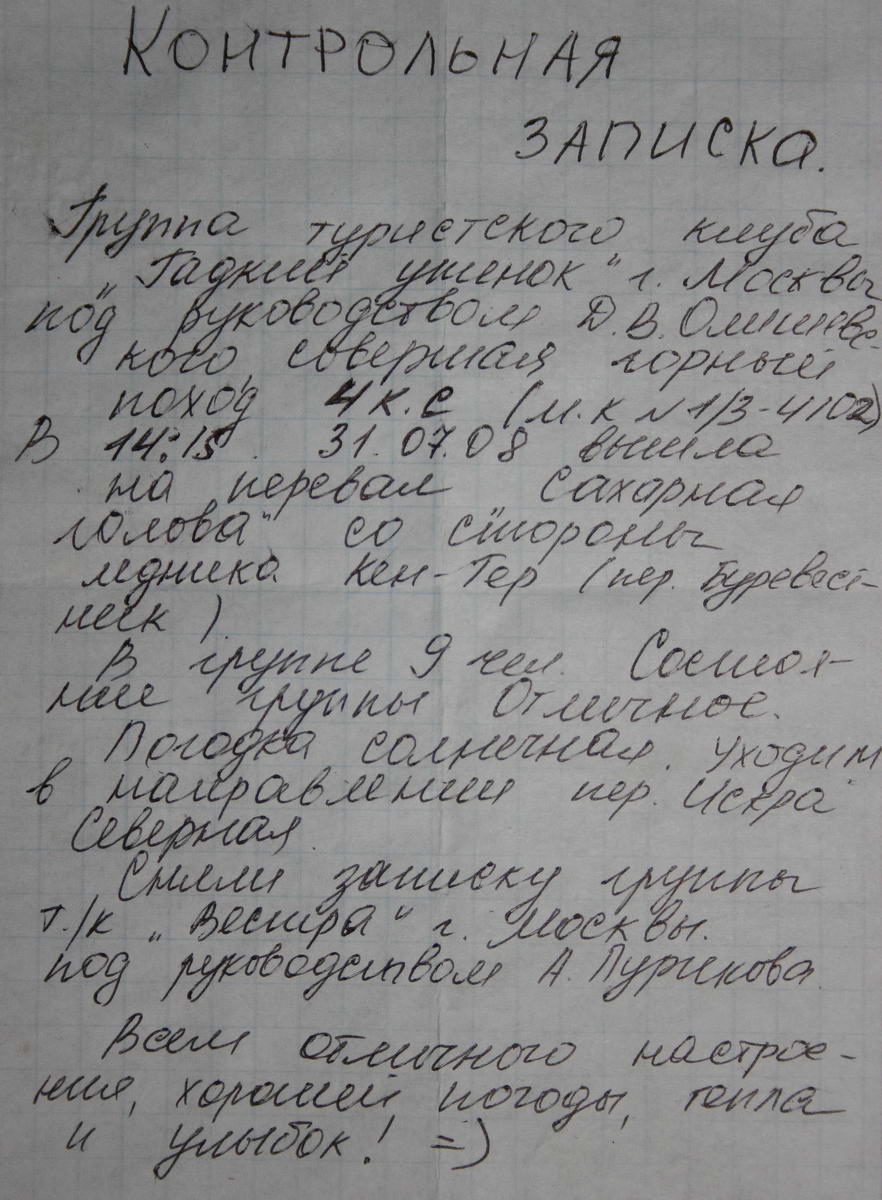 КОНТРОЛЬНАЯ
ЗАПИСКА.
Группа туристского клуба
„Гадкий утенок" г. Москвы
под руководством Д.В. Олишевс-
кого, совершая горный
поход 4 к.с (м.к №1/3-4102)
В 14:15 31.07.08 вышла
на перевал "Сахарная
голова" со стороны
ледника Кен-Тер (пер. Буревест-
ник)
В группе 9 чел. Состоя-
ние группы Отличное.
Погодка солнечная. Уходим
в направлении пер. Искра
Северная
Сняли записку группы
т./к „Вестра" г. Москвы.
под руководством А. Пурикова.
Всем отличного настрое-
ния, хорошей погоды, тепла
и улыбок! =)